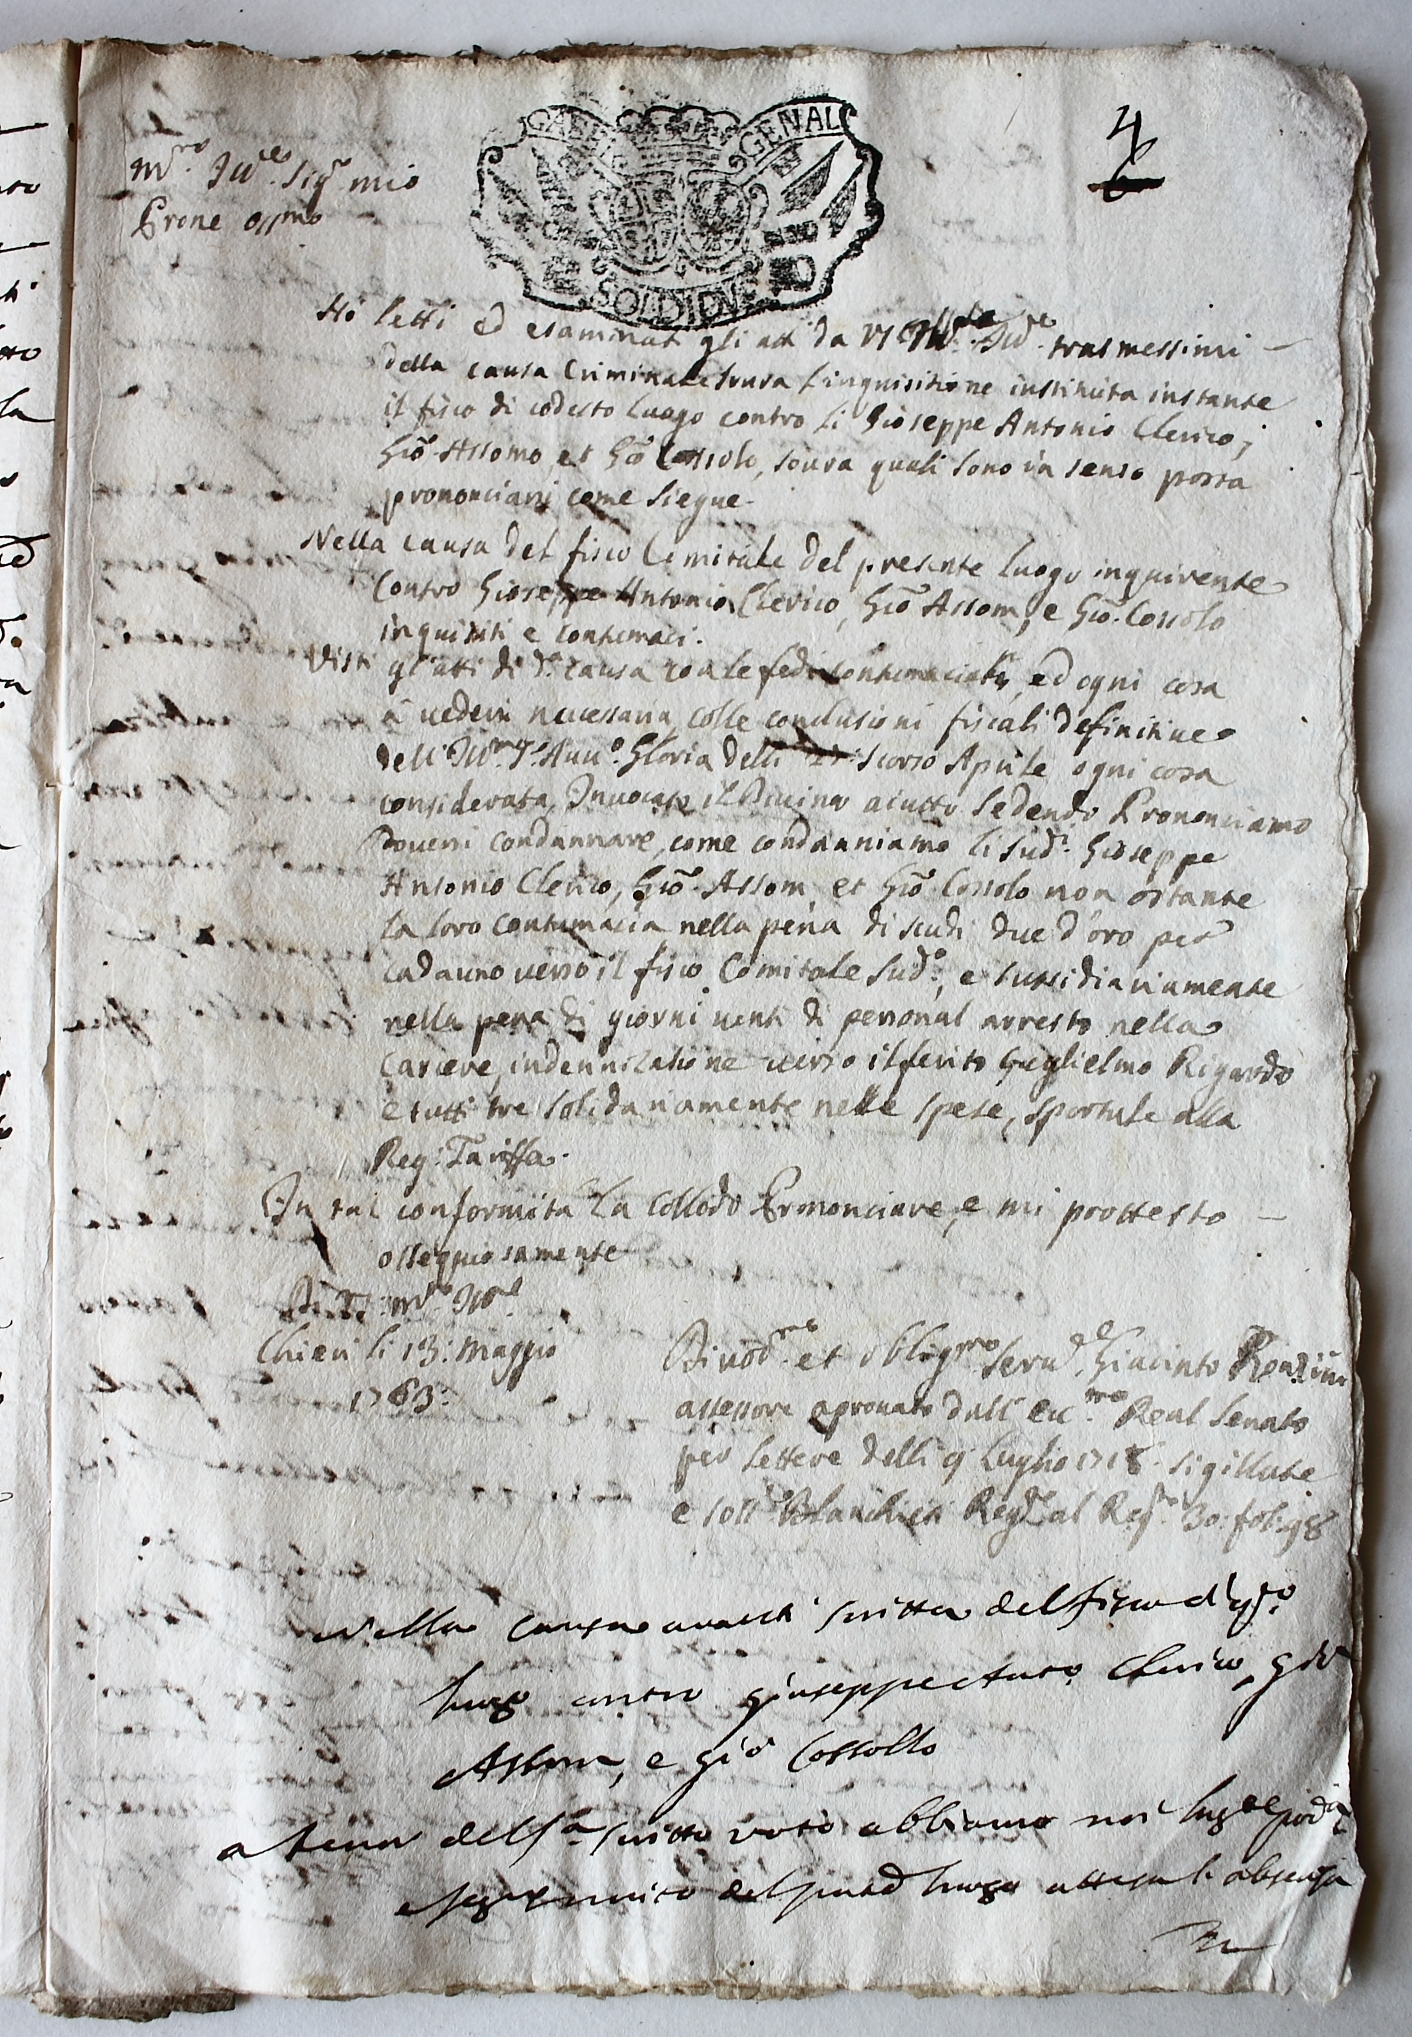 4
6
GAB GENAL
SOLDI DVE
M.ro Ill.e Sig.r mio
Prone oss.mo
Hò letti ed esaminati gli atti da V S M.to Ill.e trasmessimi
della causa Criminale soura l'inquisitione instituita instante
il fisco di codesto luogo contro li Gioseppe Antonio Clerico,
Giō Assomo, et Giō Cossolo, soura quali sono in senso possa
prononciarsi come siegue.
Nella causa del fisco Comitale del presente luogo inquirente
Contro Gioseppe Antonio Clerico, Giō Assom, e Giō Cossolo
inquisiti e contumaci.
Visti gl'atti di d.a causa con le fedi contumaciali, ed ogni cosa
à uedersi necessaria, colle conclusioni fiscali definitiue
dell' Ill.mo S.r Auu.o Gloria delli scorso Aprile ogni cosa
considerata, Inuocato il Diuino aiutto Sedendo Prononciamo
Douersi condannare, come condanniamo li sud.i Gioseppe
Antonio Clerico, Giō Assom, et Giō Cossolo non ostante
la loro contumacia nella pena di scudi due d'oro per
cadauno uerso il fisco Comitale sud.o, e sussidiariamente
nella pena di giorni uenti di personal arresto nella
Carcere, indennizatione uerso il ferito Guglielmo Rigardo
e tutti tre solidariamente nelle spese, sportule alla
Reg: Tariffa.
In tal conformità La Collodo Prononciare, e mi prottesto
ossequiosamente
Di V.S. M.to Ill.e
Chieri li 13: Maggio
1763:
Diuot.mo et obblig.mo Seru.e Giacinto
assessore aprouato dall' Ecc.mo Real Senato
per lettere delli 9 Luglio 1718 sigillate
e sott.e Reg.te al Reg.o 30: fol: 98
Nella causa auanti scritta del fisco di q.to
luogo contro Giuseppe Anto.o Clerico, Giō
Assom, e Giō Cossollo
a tenor del s.a scritto voto abbiamo noi
del luogo attesa l'absenza